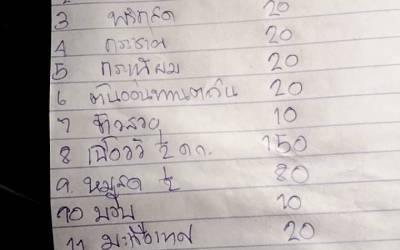 3 พริกสด 20
4 กระชาย 20
5 กระเทียม 20
6 ต้นอ่อนทานตะวัน 20
7 10
8 เนื้อวัว ½ กก. 150
9. หมูสด ½ 80
10 บวบ 10
11 มะเขือเทศ 20